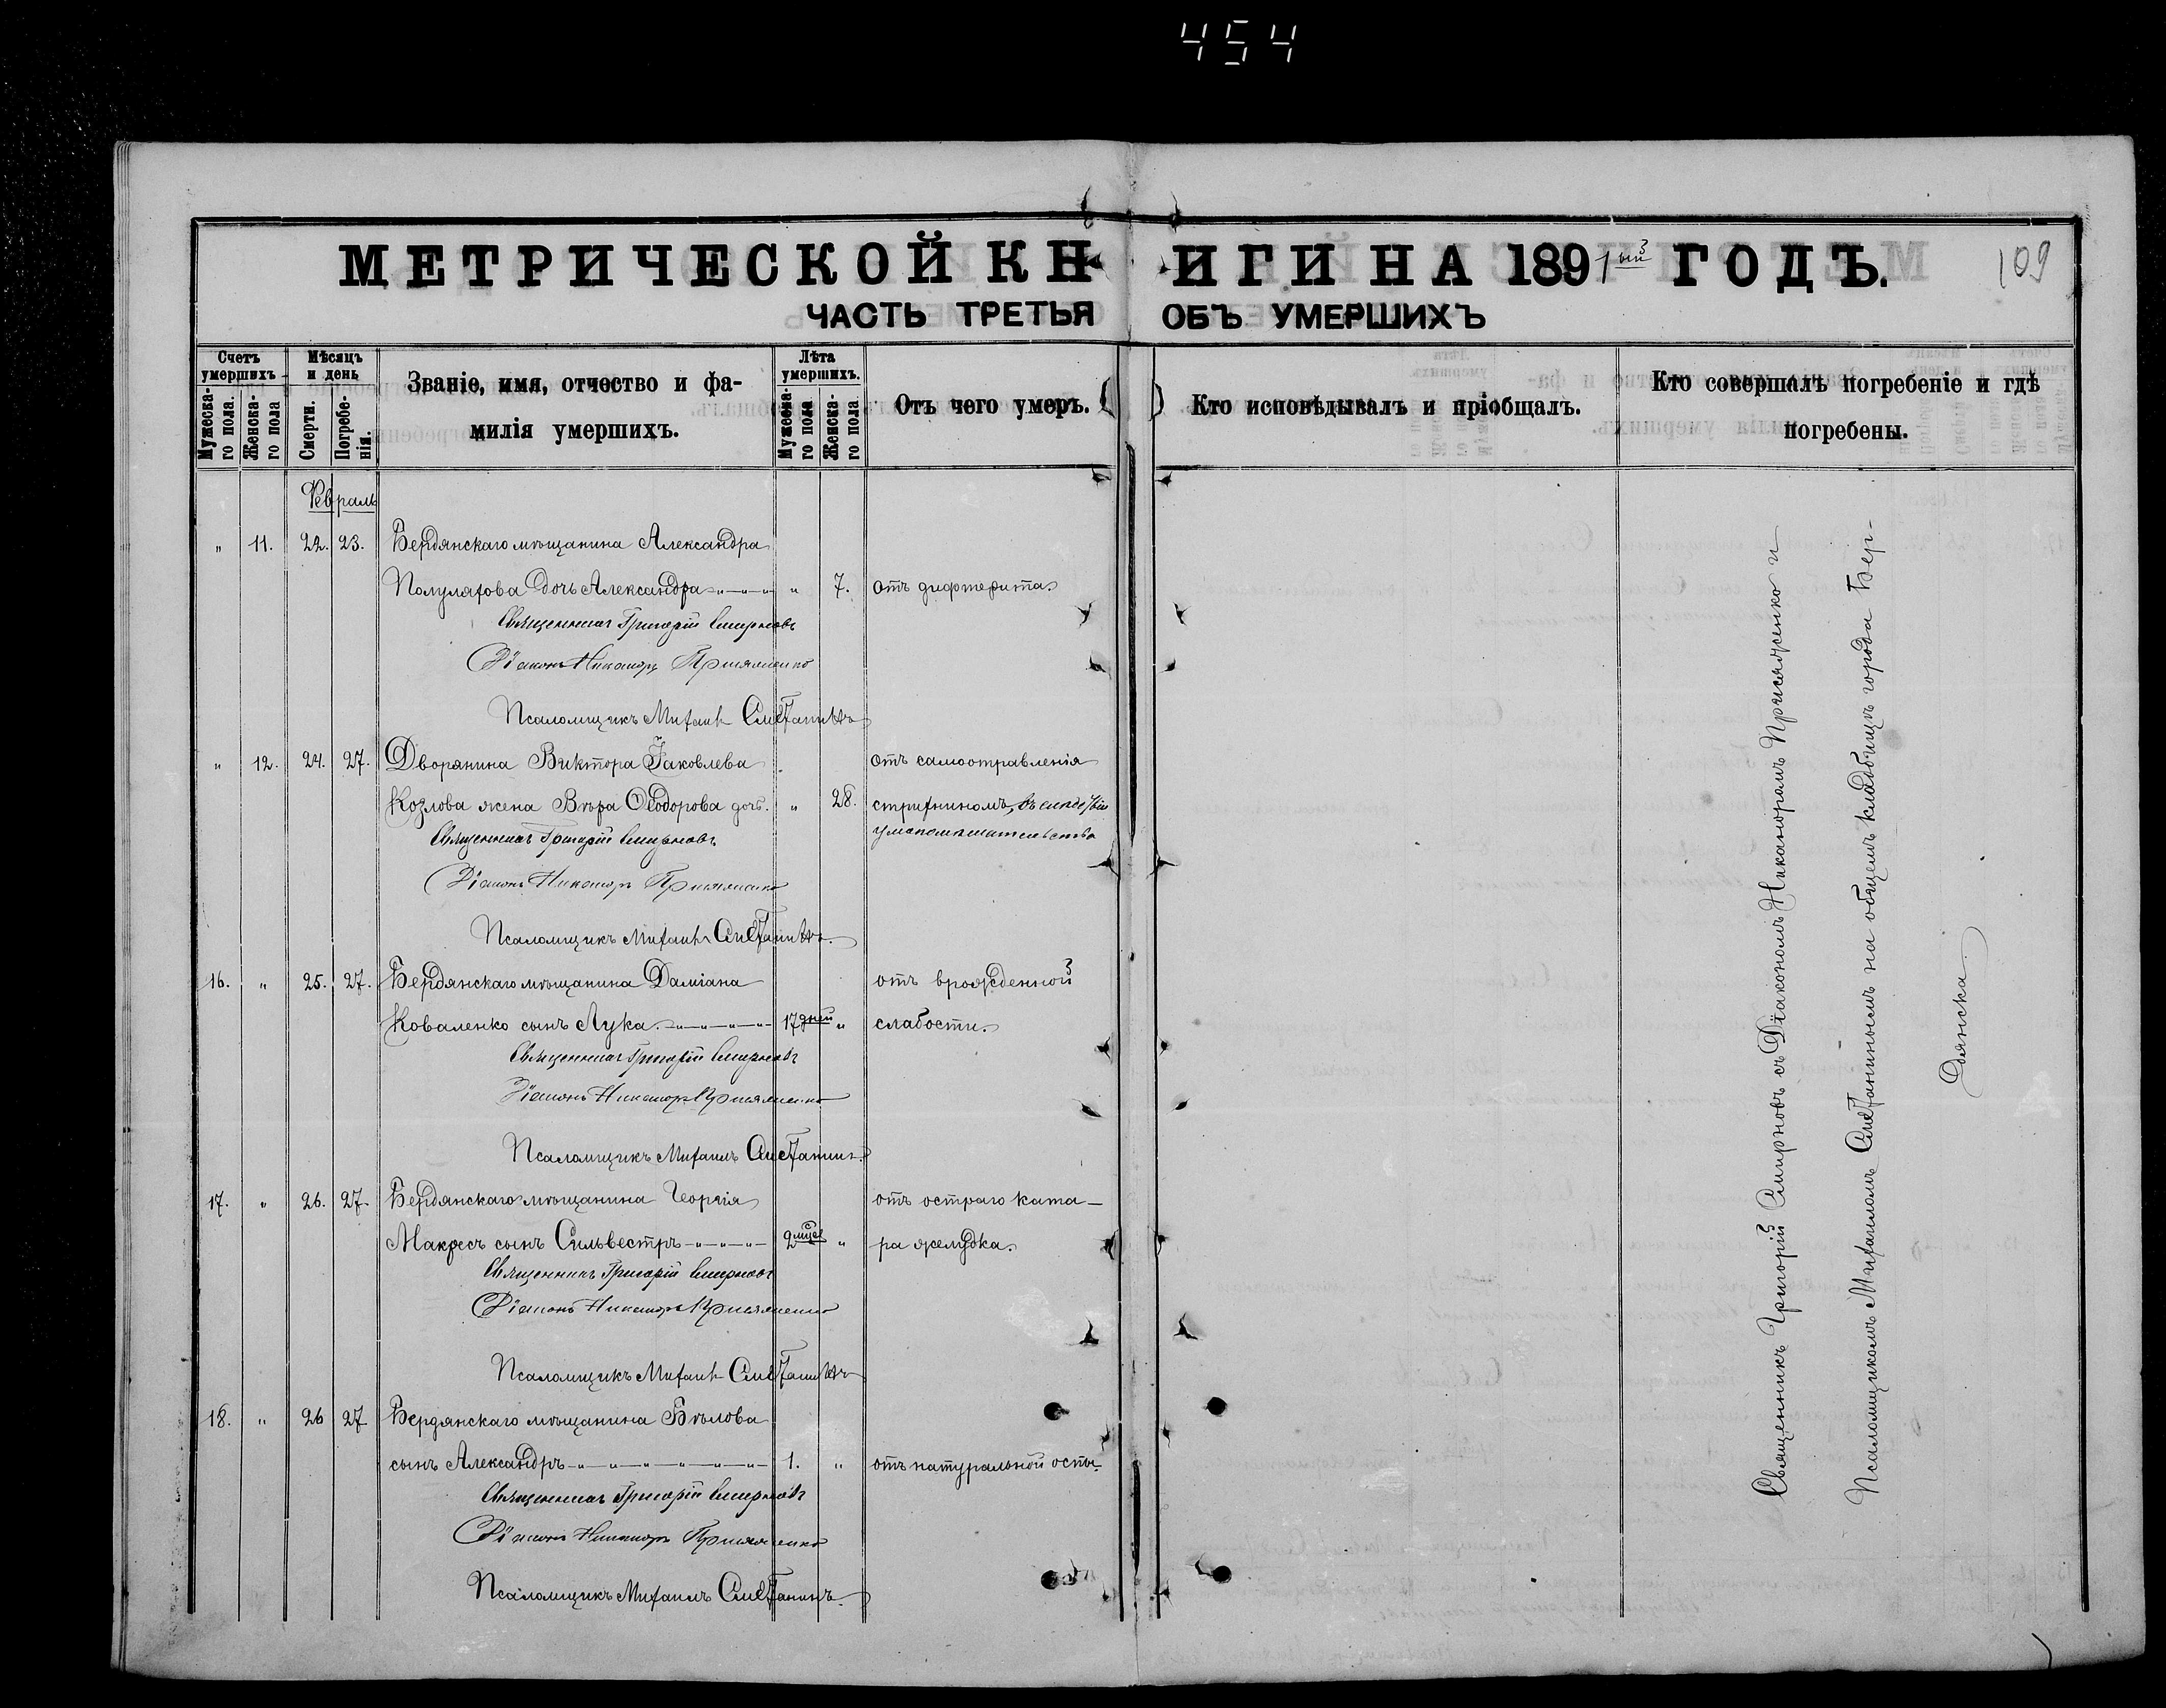 454
МЕТРИЧЕСКОЙ КНИГИ НА 1891ый ГОДЪ.
3
109
ЧАСТЬ ТРЕТЬЯ ОБЪ УМЕРШИХЪ
Счетъ умершихъ
Мужеска-го пола.
Женска-го пола
Мѣсяцъ и день
Смерти.
Погребе-нія.
Званіе, имя, отчество и фа-
милія умершихъ.
Лѣта умершихъ.
Мужеска-го пола
Женска-го пола
Отъ чего умеръ.
Кто исповѣдывалъ и пріобщалъ.
Кто совершалъ погребеніе и гдѣ
погребены.
Февраль
" 11. 22. 23. Бердянскаго мѣщанина Александра
Полулятова дочь Александра " 7. отъ дифтерита.
Священникъ Григорій Смирновъ
Діаконъ Никаноръ Присяженко
Псаломщикъ Михаилъ Сметанинъ
" 12. 24. 27. Дворянина Виктора Іаковлева отъ самоотравленія
Козлова жена Вѣра Ѳеодорова дочь. " 28. стрихниномъ, въ слѣдствіи
умопомѣшательства
Священникъ Григорій Смирновъ
Діаконъ Никаноръ Присяженко
Псаломщикъ Михаилъ Сметанинъ.
16. " 25. 27. Бердянскаго мѣщанина Даміана отъ врожденной
Коваленко сынъ Лука. 17 дней " слабости.
Священникъ Григорій Смирновъ
Діаконъ Никаноръ Присяженко
Псаломщикъ Михаилъ Сметанинъ.
17. " 26. 27. Бердянскаго мѣщанина Георгія отъ остраго ката-
Макресъ сынъ Сильвестръ 2 мѣс " ра желудка.
Священникъ Григорій Смирновъ
Діаконъ Никаноръ Присяженко
Псаломщикъ Михаилъ Сметанинъ
18. " 26 27 Бердянскаго мѣщанина Бѣлова
сынъ Александръ 1. " отъ натуральной оспы.
Священникъ Григорій Смирновъ
Діаконъ Никаноръ Присяженко
Псаломщикъ Михаилъ Сметанинъ.
Священникъ Григорій Смирновъ съ Діакономъ Никаноромъ Присяженко и
Псаломщикомъ Михаиломъ Сметанинымъ на общемъ кладбищѣ города Бер-
дянска.